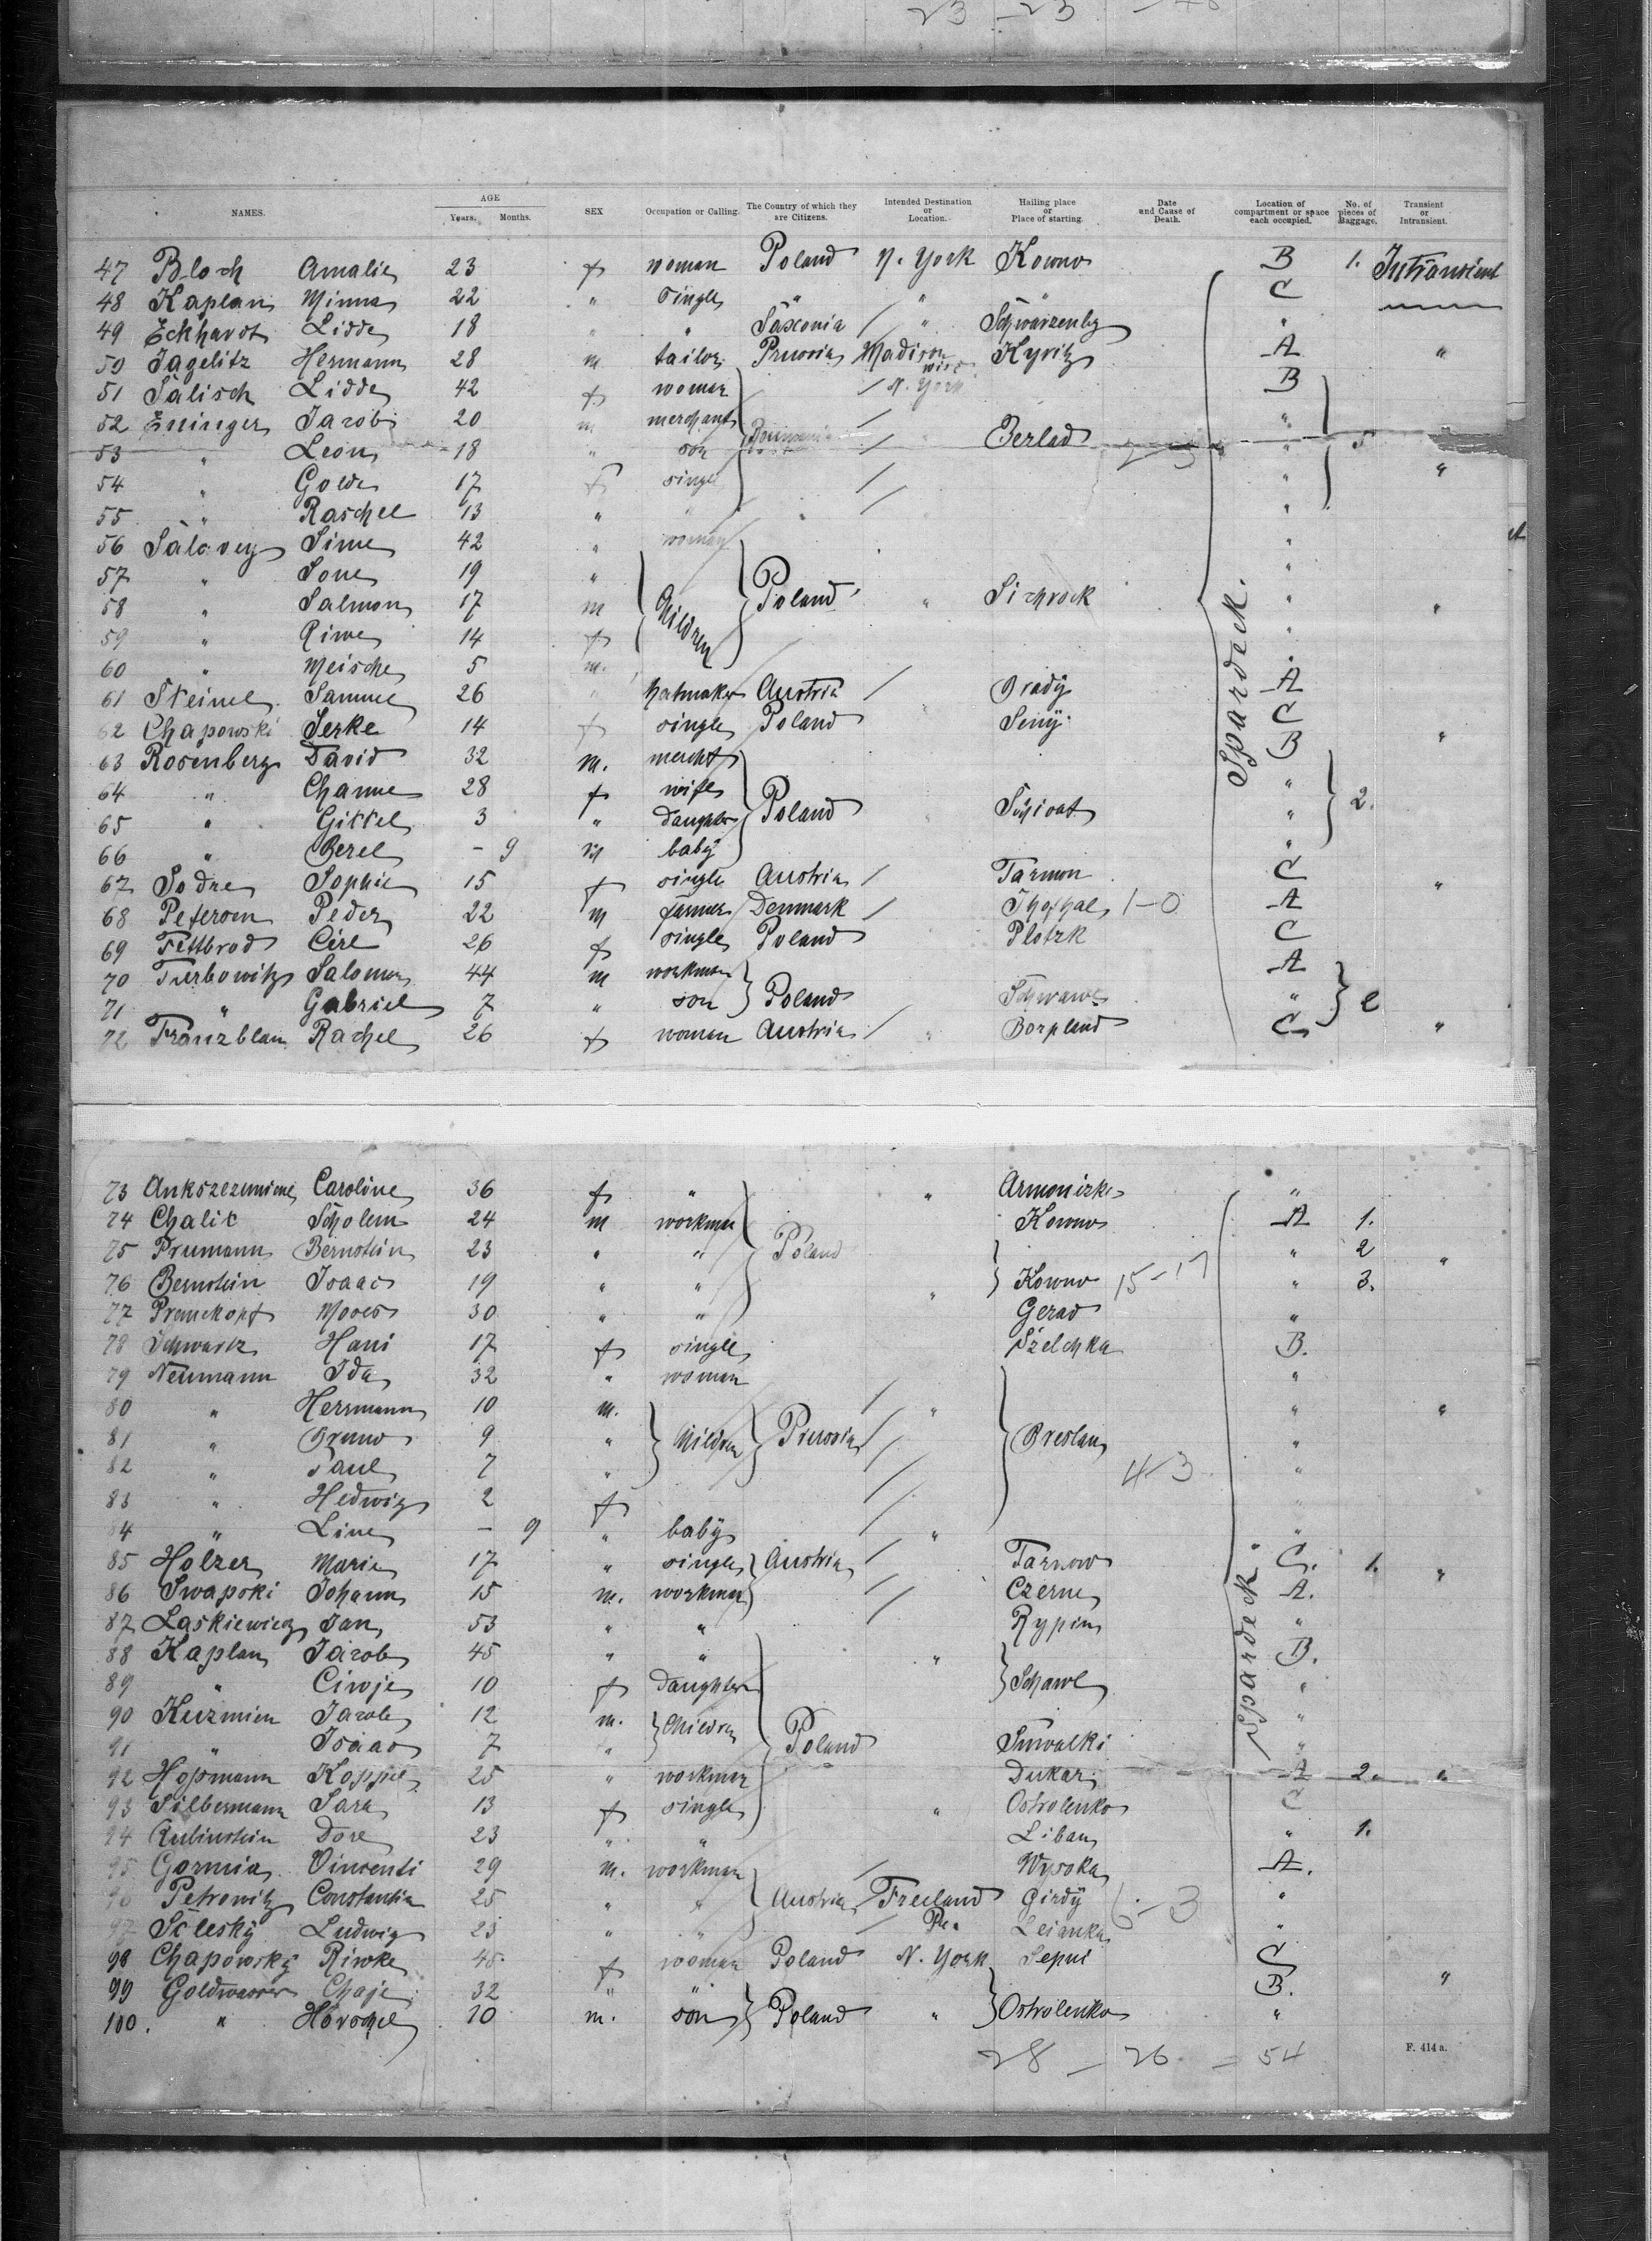 23 - 23
NAMES. AGE Years. Months. SEX Occupation or Calling. The Country of which they are Citizens. Intended Destination or Location. Hailing place or Place of starting. Date and Cause of Death. Location of compartment or space each occupied. No. of pieces of Baggage. Transient or Intransient.
47 Bloch Amalie 23 f woman Poland N. York Kowno B 1. Intransient
48 Kaplan Minna 22 " single " " " C
49 Eckhardt Lidde 18 " " Saxonia / " Schwarzenbg "
50 Jagelitz Hermann 28 m tailor Prussia Madison Wisc Kyritz A "
51 Salisch Lidde 42 f woman / N. York B
52 Eninger Jacob 20 m merchant Roumania / Berlad "
53 " Leon 18 " son / " " 5
54 " Golde 17 f single / " "
55 " Raschel 13 " " / "
56 Salovey Sime 42 " woman "
57 " Sone 19 " "
58 " Salmon 17 m Children Poland " Sichrock " "
59 " Riwe 14 f "
60 " Meische 5 m. "
61 Steinel Samuel 26 " hatmaker Austria / Brady A
62 Chapowski Serke 14 f single Poland Seny C
63 Rosenberg David 32 m. mercht B "
64 " Channe 28 f wife "
65 " Gittel 3 " daughter Poland " 2.
66 " Berel - 9 m baby "
67 Sodre Sophie 15 f single Austria / Tarmon C "
68 Petersen Peder 22 m farmer Denmark / 1-0 A
69 Fettbrod Cire 26 f single Poland Plotzk C
70 Turbowitz Salomon 44 m workman A
71 " Gabriel 7 " son Poland "
72 Franzblau Rachel 26 f woman Austria / " C "
73 Caroline 36 f " " "
74 Chalit Scholem 24 m workman Kowno A 1.
75 Prumann Bernstein 23 " " Poland " 2 "
76 Bernstein Isaac 19 " " " Kowno 15-17 " 3.
77 Moses 30 " " Gerad "
78 Schwartz Hani 17 f single Szelchka B.
79 Neumann Ida 32 " woman "
80 " Herrmann 10 m. / " " "
81 " Bruno 9 " Children Prussia / Breslau "
82 " Paul 7 " / 4-3 "
83 " Hedwig 2 f / "
84 " Line - 9 " baby / " "
85 Holzer Marie 17 " single Austria / Tarnow C. 1. "
86 Swapski Johann 15 m. workman / Czerne A.
87 Laskiewicz Jan 53 " " Rypin "
88 Kaplan Jacob 45 " " " B.
89 " Ciwje 10 f daughter Schawl "
90 Kuzmien Jacob 12 m. Children "
91 " Isaac 7 " Poland Suwalki "
92 Hopmann Koppel 25 " workman Dukar A 2. "
93 Silbermann Sara 13 f single " Ostrolenko C
94 Rubinstein Dore 23 " " Libau " 1.
95 Gormia Vincenti 29 m. workman / Wysoka A.
96 Petrowitz Constantin 25 " " Austria / Freeland Girdy 6-3 "
97 Ludwig 23 " " / Pa. Leianka "
98 Chapowsky Riwke 45 f woman Poland N. York Sepni C
99 Goldwasser Chaje 32 " " B. "
100. " Herschel 10 m. son Poland " Ostrolenko "
28 - 26 = 54
F. 414 a.
Spardeck.
Spardeck.